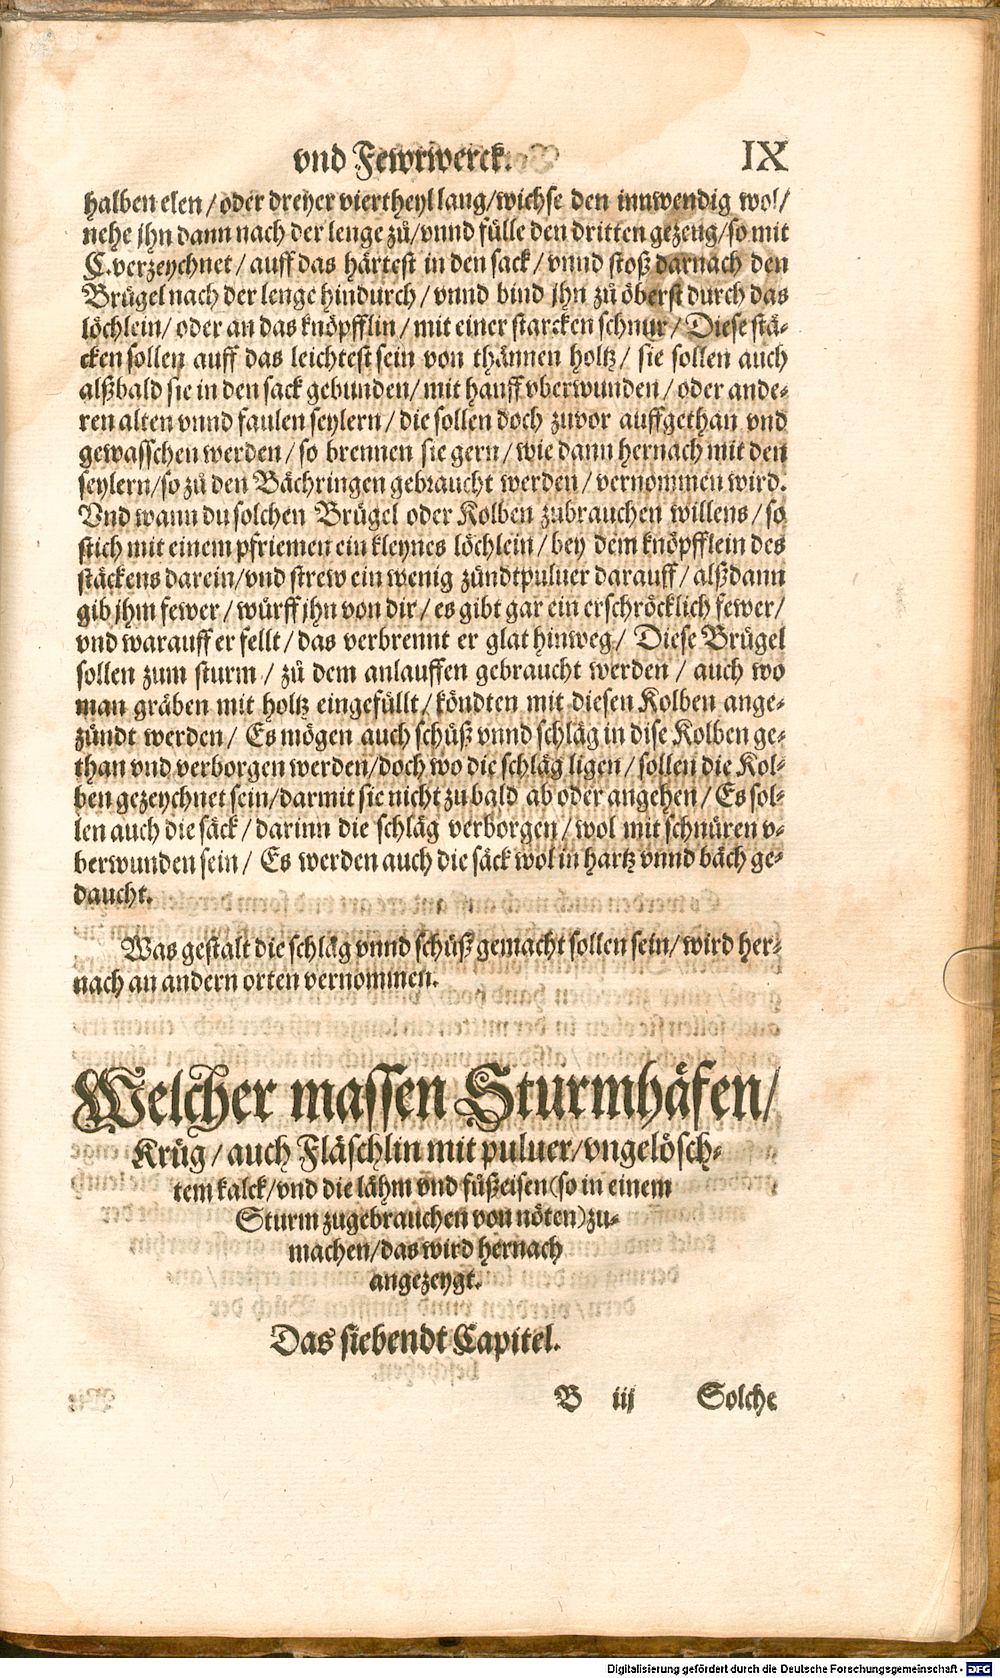 vnd Fewrwerck. IX
halben elen / oder dreyer viertheyl lang/wichse den innwendig wol/
nehe jhn dann nach der lenge zů/vnnd fülle den dritten gezeug/so mit
C.verzeychnet / auff das härtest in den sack / vnnd stoß darnach den
Brügel nach der lenge hindurch / vnnd bind jhn zů öberst durch das
löchlein/ oder an das knöpfflin / mit einer starcken schnur / Diese stä-
cken sollen auff das leichtest sein von thännen holtz / sie sollen auch
alßbald sie in den sack gebunden/ mit hanff vberwunden / oder ande-
ren alten vnnd faulen seylern / die sollen doch zuvor auffgethan vnd
gewasschen werden / so brennen sie gern / wie dann hernach mit den
seylern/so zů den Bächringen gebraucht werden / vernommen wird.
Vnd wann du solchen Brügel oder Kolben zubrauchen willens / so
stich mit einem pfriemen ein kleynes löchlein / bey dem knöpfflein des
stäckens darein/vnd strew ein wenig zündtpuluer darauff / alßdann
gib jhm fewer / würff jhn von dir / es gibt gar ein erschröcklich fewer/
vnd warauff er fellt / das verbrennt er glat hinweg / Diese Brügel
sollen zum sturm / zů dem anlauffen gebraucht werden / auch wo
man gräben mit holtz eingefüllt / köndten mit diesen Kolben ange-
zündt werden / Es mögen auch schüß vnnd schläg in dise Kolben ge-
than vnd verborgen werden/doch wo die schläg ligen / sollen die Kol-
ben gezeychnet sein/darmit sie nicht zu bald ab oder angehen / Es sol-
len auch die säck / darinn die schläg verborgen / wol mit schnüren v-
berwunden sein / Es werden auch die säck wol in hartz vnnd bäch ge-
daucht.
Was gestalt die schläg vnnd schüß gemacht sollen sein/ wird her-
nach an andern orten vernommen.
Welcher massen Sturmhäfen/
Krüg / auch Fläschlin mit puluer/vngelösch-
tem kalck/vnd die lähm vnd füßeisen(so in einem
Sturm zugebrauchen von nöten)zu-
machen/das wird hernach
angezeygt.
Das siebendt Capitel.
B iij Solche
Digitalisierung gefördert durch die Deutsche Forschungsgemeinschaft - DFG